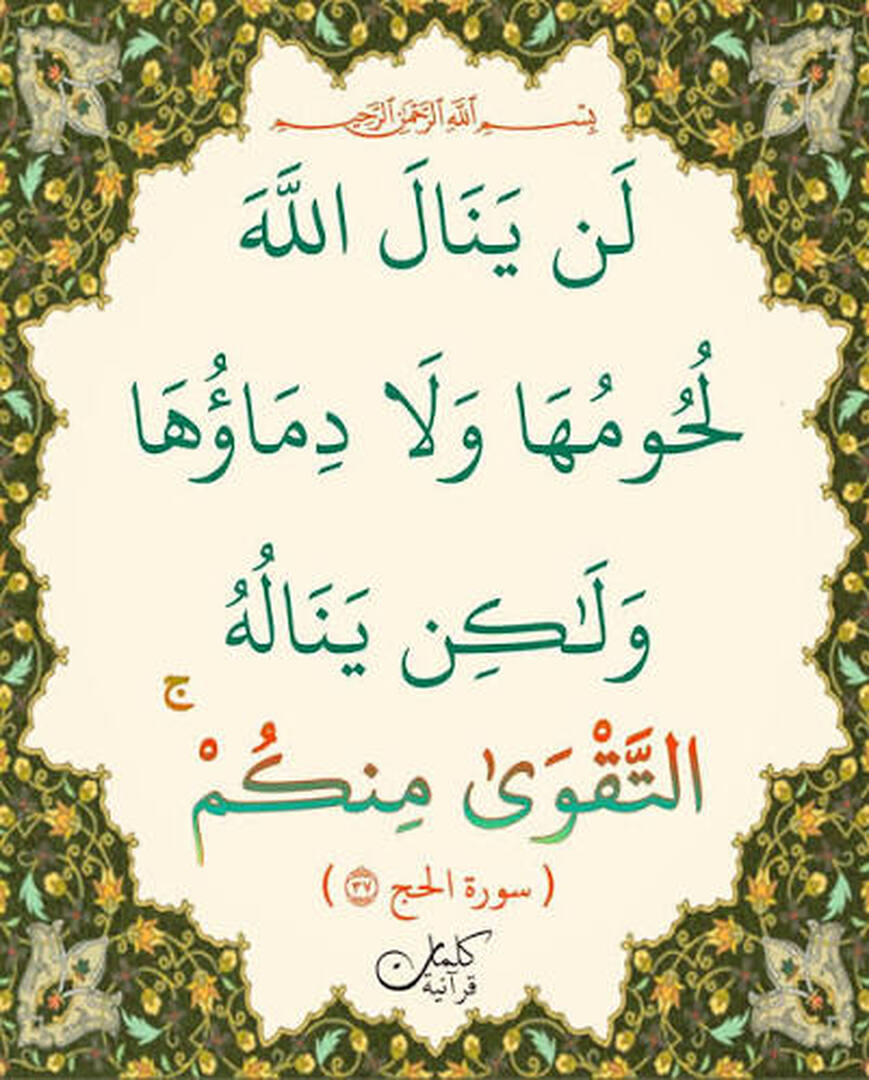 بِسْمِ ٱللَّهِ ٱلرَّحْمَٰنِ ٱلرَّحِيمِ
لَن يَنَالَ اللَّهَ
لُحُومُهَا وَلَا دِمَاؤُهَا
وَلَٰكِن يَنَالُهُ
التَّقْوَىٰ مِنكُمْ ۚ
( سورة الحج ٣٧ )
كلمات
قرآنية